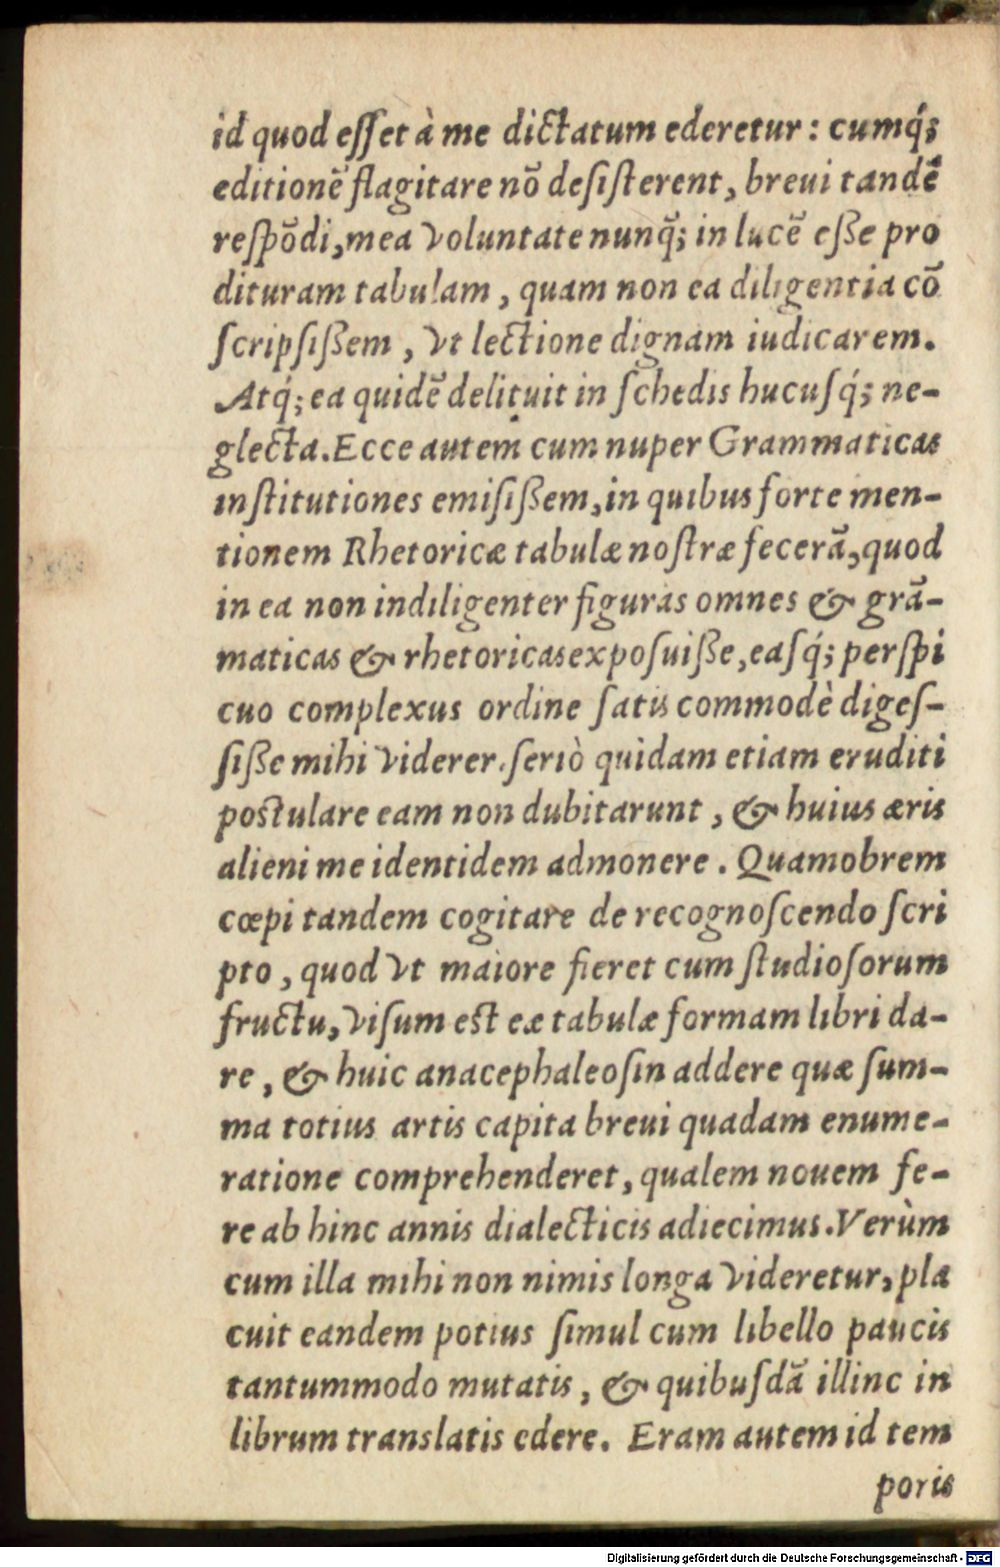 id quod eſſet à me dictatum ederetur: cumq́;
editionẽ flagitare nõ deſiſterent, breui tandẽ
reſpõdi, mea voluntate nunq̃; in lucẽ eſſe pro
dituram tabulam, quam non ea diligentia cõ
ſcripſiſſem, vt lectione dignam iudicarem.
Atq́; ea quidẽ delituit in ſchedis hucuſq́; ne-
glecta. Ecce autem cum nuper Grammaticas
inſtitutiones emiſiſſem, in quibus forte men-
tionem Rhetoricæ tabulæ noſtræ fecerã, quod
in ea non indiligenter figuras omnes & grã-
maticas & rhetoricas expoſuiſſe, eaſq́; perſpi
cuo complexus ordine ſatis commodè digeſ-
ſiſſe mihi viderer. ſeriò quidam etiam eruditi
poſtulare eam non dubitarunt, & huius æris
alieni me identidem admonere. Quamobrem
cœpi tandem cogitare de recognoſcendo ſcri
pto, quod vt maiore fieret cum ſtudioſorum
fructu, viſum eſt ex tabulæ formam libri da-
re, & huic anacephaleoſin addere quæ ſum-
ma totius artis capita breui quadam enume-
ratione comprehenderet, qualem nouem fe-
re ab hinc annis dialecticis adiecimus. Verùm
cum illa mihi non nimis longa videretur, pla
cuit eandem potius ſimul cum libello paucis
tantummodo mutatis, & quibuſdã illinc in
librum translatis edere. Eram autem id tem
poris
Digitalisierung gefördert durch die Deutsche Forschungsgemeinschaft - DFG